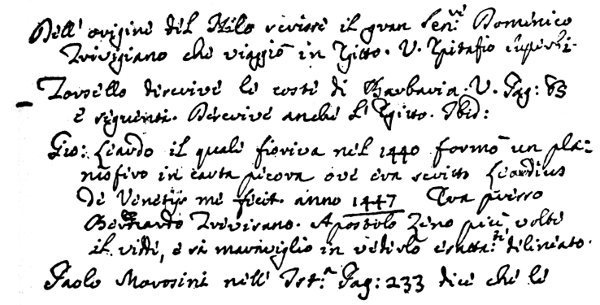 Dell' origine del Nilo scrisse il gran Sen.re Domenico
Trivigiano che viaggiò in Egitto. V. Epitafio
Torsello descrive le coste di Barbaria. V. Pag: 85
e seguenti. Descrive anche l'Egitto. Ibid:
Gio: Leardo il quale fioriva nel 1440 formò un pla-
nisfero in carta pecora ove era scritto Leardius
de Venetijs me fecit anno 1447 Era presso
Bernardo Trivisano. Apostolo Zeno più volte
il vide, e si maraviglio in vederlo esatta.te delineato.
Paolo Morosini nell' Ist.a Pag: 233 dice che le